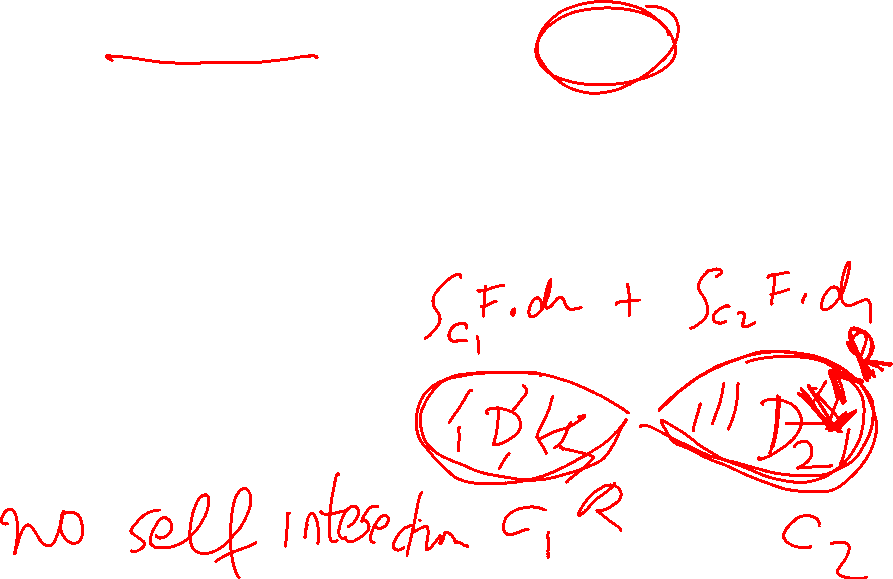 ∫_{C_1} F · dr + ∫_{C_2} F · dr
R
D_1 D_2
no self intesection C_1 R C_2